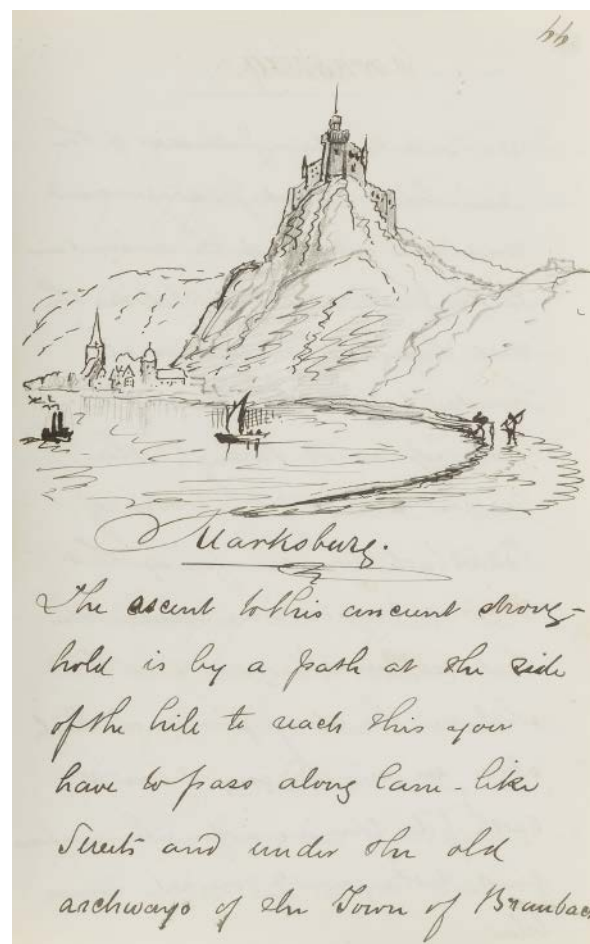 44
Marksburg.
The ascent to this ancient strong-
hold is by a path at the side
of the hill to reach this you
have to pass along lane-like
Streets and under the old
archways of the Town of Braubac